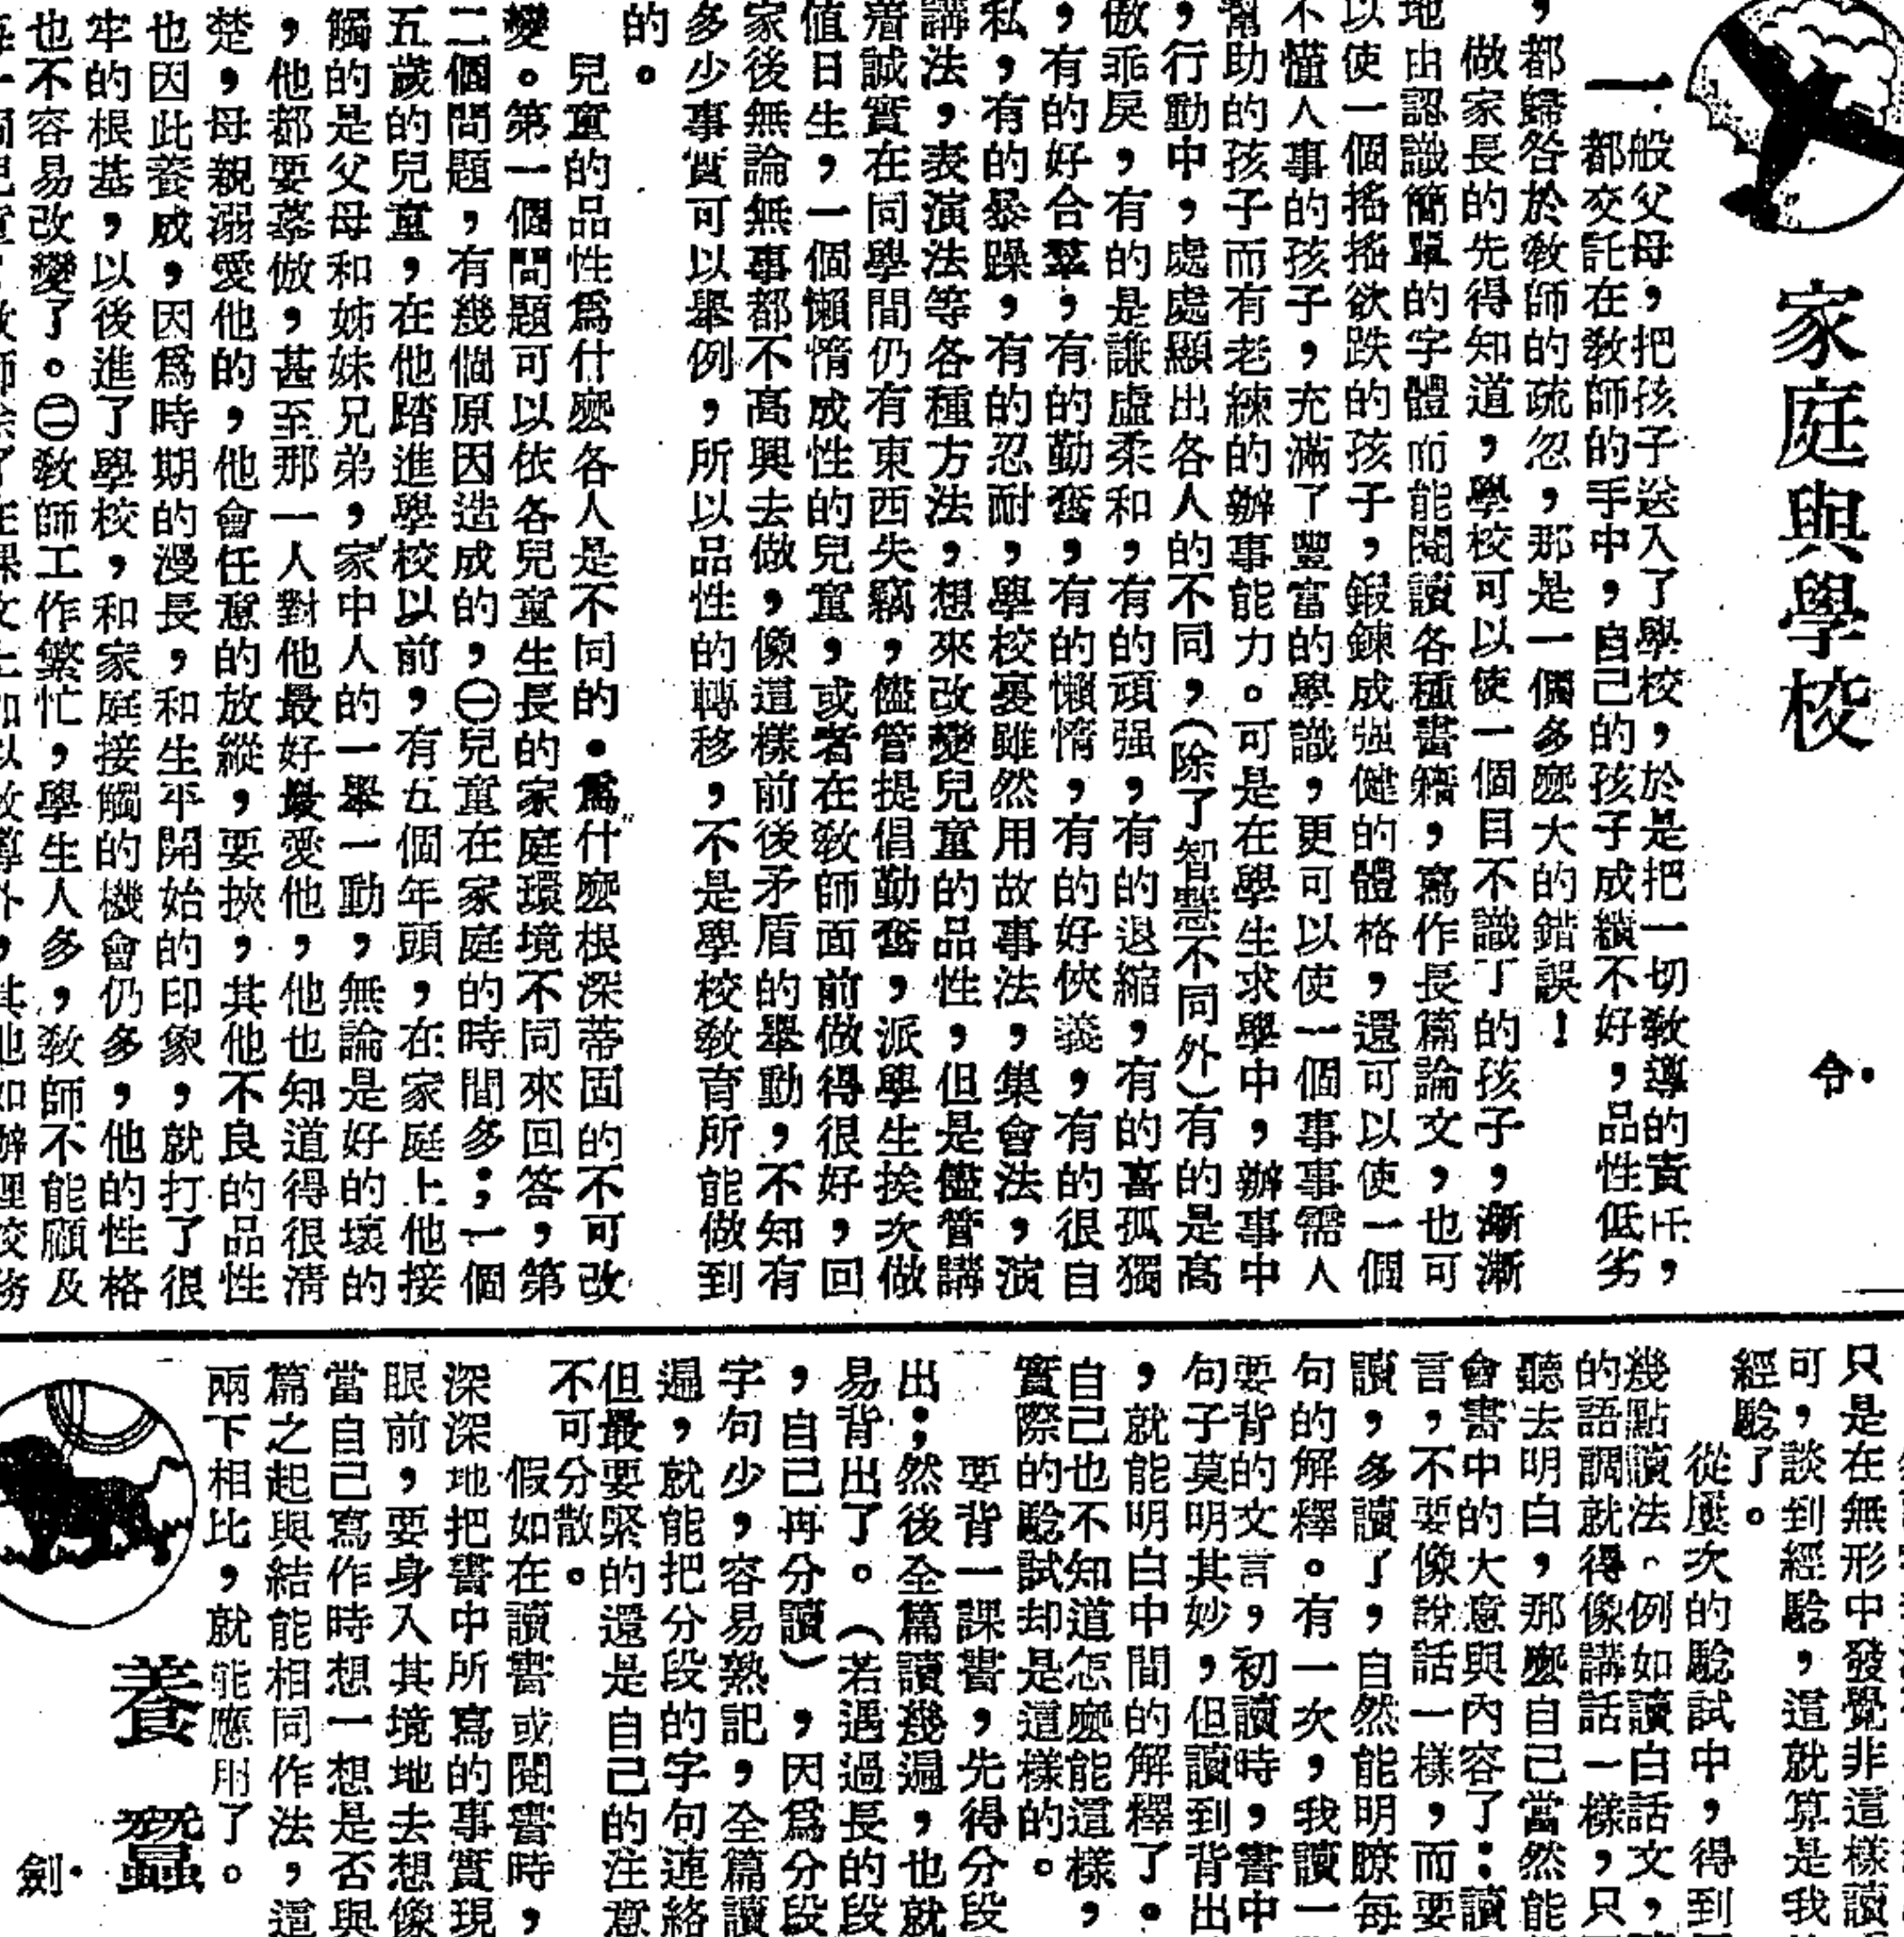 家庭與學校
令·
一般父母，把孩子送入了學校，於是把一切教導的責任，
都交託在教師的手中，自己的孩子成績不好，品性低劣
，都歸咎於教師的疏忽，那是一個多麼大的錯誤！
做家長的先得知道，學校可以使一個目不識丁的孩子，漸漸
地由認識簡單的字體而能閱讀各種書籍，寫作長篇論文，也可
以使一個搖搖欲跌的孩子，鍛鍊成強健的體格，還可以使一個
不懂人事的孩子，充滿了豐富的學識，更可以使一個事事需人
幫助的孩子而有老練的辦事能力。可是在學生求學中，辦事中
，行動中，處處顯出各人的不同，（除了智慧不同外）有的是高
傲乖戾，有的是謙虛柔和，有的頑强，有的退縮，有的喜孤獨
，有的好合羣，有的勤奮，有的懶惰，有的好俠義，有的很自
私，有的暴躁，有的忍耐，學校裏雖然用故事法，集會法，演
講法，表演法等各種方法，想來改變兒童的品性，但是儘管講
着誠實在同學間仍有東西失竊，儘管提倡勤奮，派學生挨次做
值日生，一個懶惰成性的兒童，或者在教師面前做得很好，回
家後無論無事都不高興去做，像這樣前後矛盾的舉動，不知有
多少事實可以舉例，所以品性的轉移，不是學校教育所能做到
的。
兒童的品性爲什麼各人是不同的·爲什麼根深蒂固的不可改
變。第一個問題可以依各兒童生長的家庭環境不同來回答，第
二個問題，有幾個原因造成的，㊀兒童在家庭的時間多；一個
五歲的兒童，在他踏進學校以前，有五個年頭，在家庭上他接
觸的是父母和姊妹兄弟，家中人的一舉一動，無論是好的壞的
，他都要摹倣，甚至那一人對他最好最愛他，他也知道得很清
楚，母親溺愛他的，他會任意的放縱，要挾，其他不良的品性
也因此養成，因爲時期的漫長，和生平開始的印象，就打了很
牢的根基，以後進了學校，和家庭接觸的機會仍多，他的性格
也不容易改變了。㊁教師工作繁忙，學生人多，教師不能顧及
只是在無形中發覺非這樣讀
可，談到經驗，這就算是我
經驗了。
從屢次的驗試中，得到
幾點讀法。例如讀白話文，
的語調就得像講話一樣，只
聽去明白，那麼自己當然能
會書中的大意與內容了：讀
言，不要像說話一樣，而要
讀，多讀了，自然能明瞭每
句的解釋。有一次，我讀一
要背的文言，初讀時，書中
句子莫明其妙，但讀到背出
，就能明白中間的解釋了。
自己也不知道怎麼能這樣，
實際的驗試却是這樣的。
要背一課書，先得分段
出；然後全篇讀幾遍，也就
易背出了。（若遇過長的段
，自己再分讀），因爲分段
字句少，容易熟記，全篇讀
遍，就能把分段的字句連絡
但最要緊的還是自己的注意
不可分散。
假如在讀書或閱書時，
深深地把書中所寫的事實現
眼前，要身入其境地去想像
當自己寫作時想一想是否與
篇之起與結能相同作法，這
兩下相比，就能應用了。
養蠶
劍·